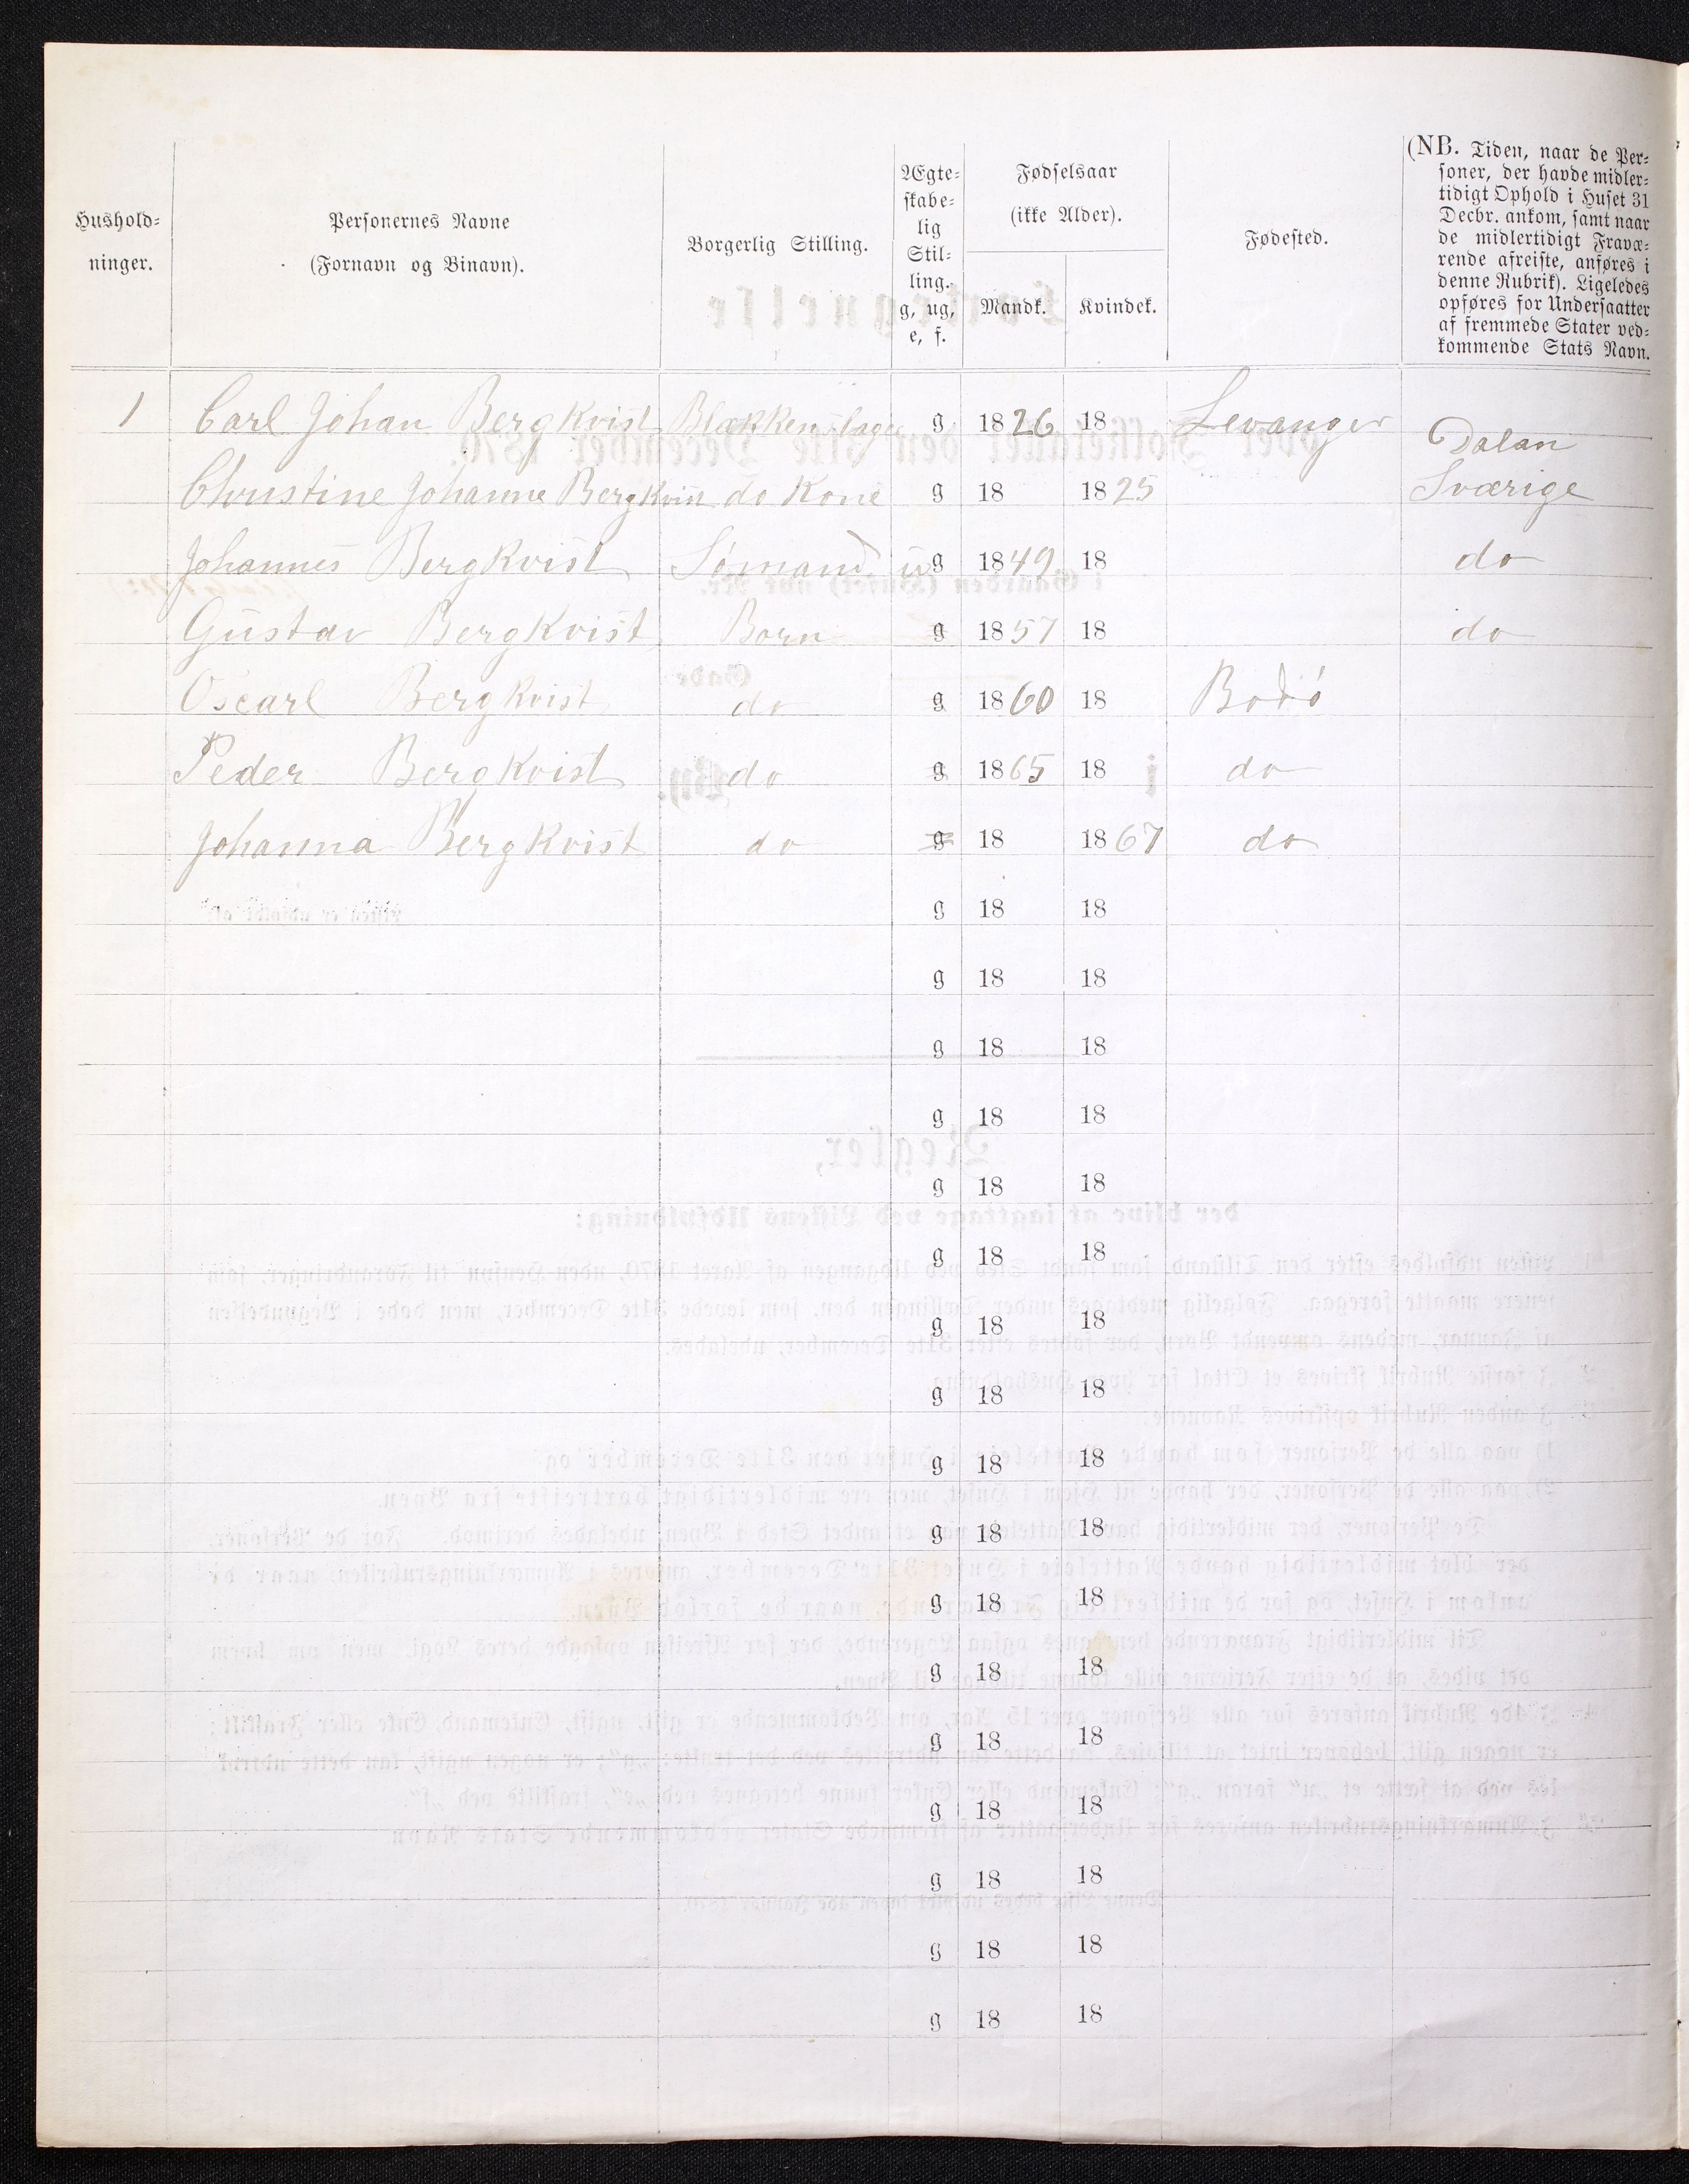 Hushold-
ninger.
Personernes Navne
(Fornavn og Binavn).
Borgerlig Stilling.
Ægte-
skabe-
lig
Stil-
ling.
g, ug,
e, f.
Fødselsaar
(ikke Alder).
Mandk. Kvindek.
Fødested.
(NB. Tiden, naar de Per-
soner, der havde midler-
tidigt Ophold i Huset 31
Decbr. ankom, samt naar
de midlertidigt Fravæ-
rende afreiste, anføres i
denne Rubrik). Ligeledes
opføres for Undersaatter
af fremmede Stater ved-
kommende Stats Navn.
1 Carl Johan Bergkvist Blækkenslager g 1826 18 Levanger Dalan
Christine Johanne Bergkvist do Kone g 18 1825 Sværige
Johannes Bergkvist Sømand ug 1849 18 do
Gustav Bergkvist Born g 1857 18 do
Oscarl Bergkvist do g 1860 18 Bodó
Peder Bergkvist do g 1865 18 do
Johanna Bergkvist do g 18 1867 do
g 18 18
g 18 18
g 18 18
g 18 18
g 18 18
g 18 18
g 18 18
g 18 18
g 18 18
g 18 18
g 18 18
g 18 18
g 18 18
g 18 18
g 18 18
g 18 18
g 18 18